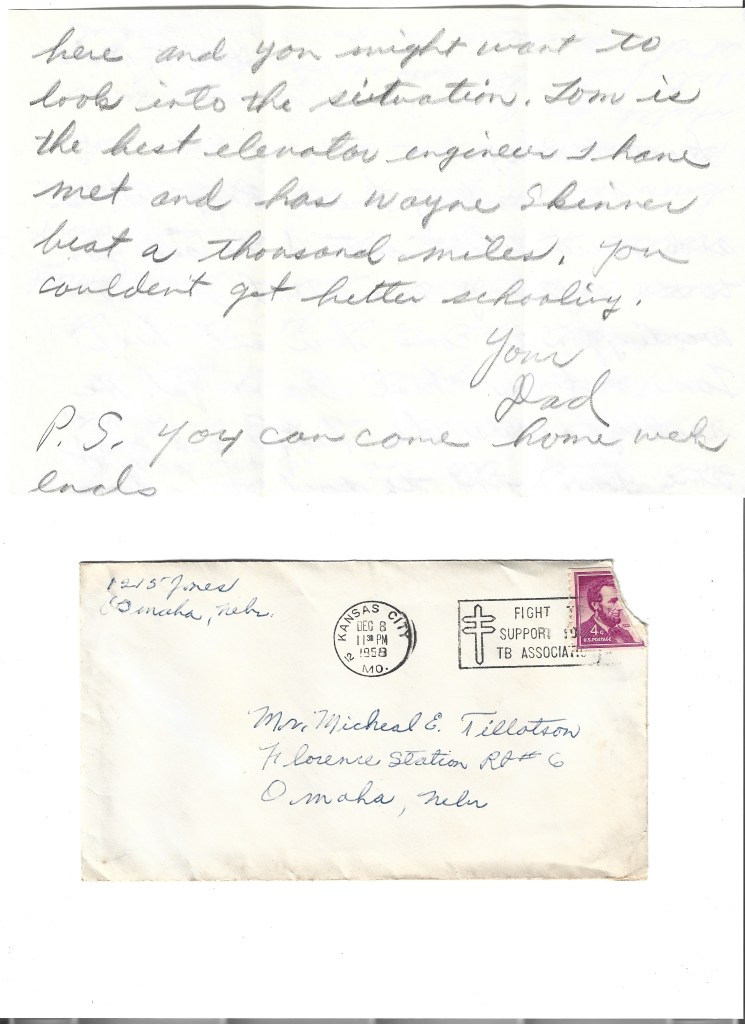 here and you might want to
look into the situation. Tom is
the best elevator engineer I have
met and has Wayne Skinner
beat a thousand miles. You
couldent get better schooling.
Your
Dad
P.S. You can come home week
ends
1215 Jones
Omaha, Nebr.
KANSAS CITY
DEC 8
11 30 PM
1958
12
MO.
FIGHT
SUPPORT
TB ASSOCIATI
4¢
U.S. POSTAGE
Mr. Micheal E. Tillotson
Florence Station Rt # 6
Omaha, Nebr